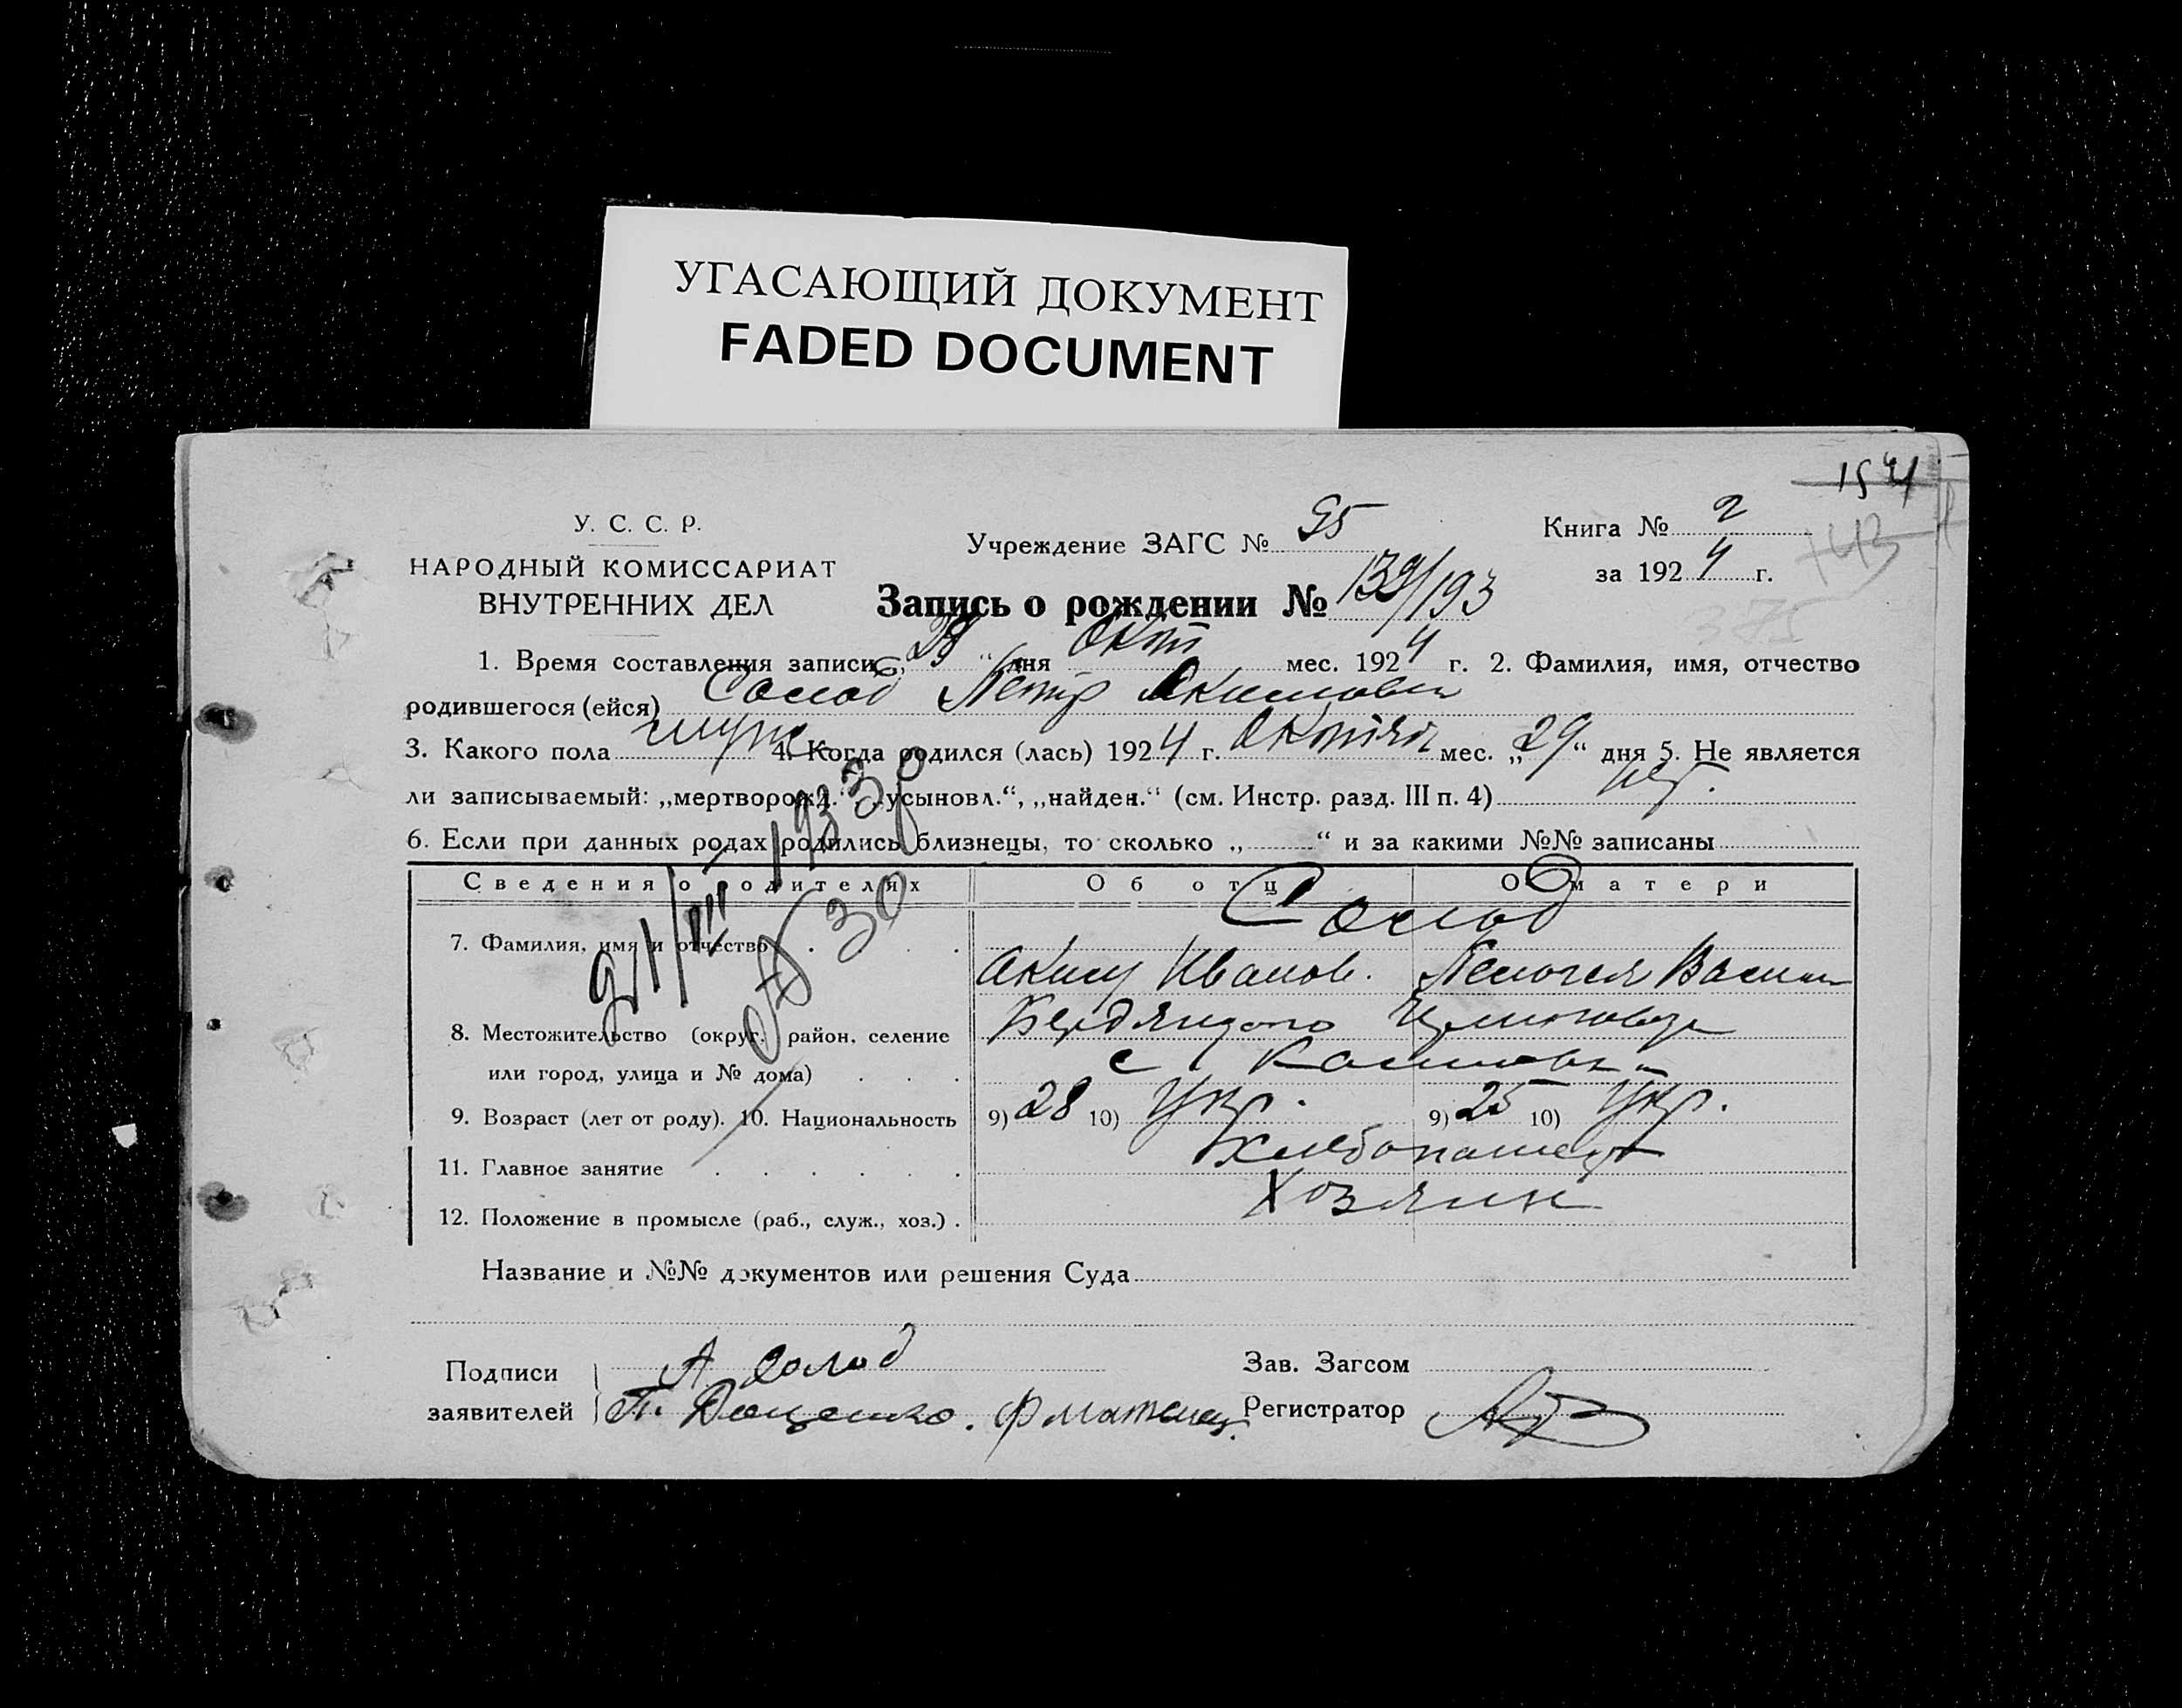 УГАСАЮЩИЙ ДОКУМЕНТ
FADED DOCUMENT
1541
У. С. С. Р.
НАРОДНЫЙ КОМИССАРИАТ
ВНУТРЕННИХ ДЕЛ
Учреждение ЗАГС № 95
Книга № 2
за 1924 г.
143
375
Запись о рождении № 139/193
1. Время составления записи „ “ дня Окт мес. 1924 г. 2. Фамилия, имя, отчество
родившегося (ейся) Солод Петр Акимович
3. Какого пола муж 4. Когда родился (лась) 1924 г. Октября мес. „29“ дня 5. Не является
ли записываемый: „мертворожд.“ „усыновл.“, „найден.“ (см. Инстр. разд. III п. 4) нет.
6. Если при данных родах родились близнецы, то сколько „ “ и за какими №№ записаны
Сведения о родителях Об отце О матери
7. Фамилия, имя и отчество Солод
Аким Иванов. Пелагея Васил
8. Местожительство (округ, район, селение
или город, улица и № дома) с
9. Возраст (лет от роду). 10. Национальность 9) 28 10) Укр. 9) 25 10) Укр.
11. Главное занятие Хлебопашец
12. Положение в промысле (раб., служ., хоз.) Хозяин
1933 г
30
Название и №№ документов или решения Суда
Подписи
заявителей
А Солод
П. Доценко.
Зав. Загсом
Регистратор